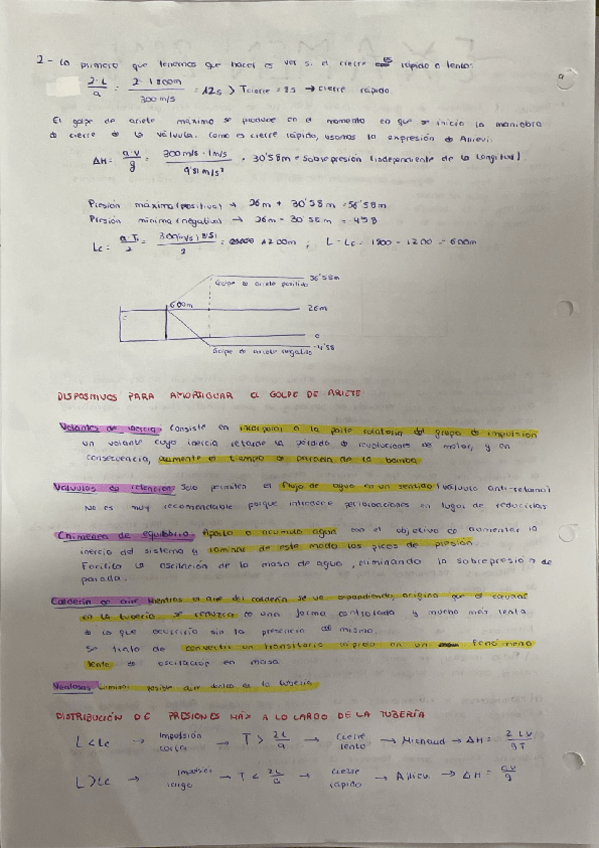 2 - Lo primero que tenemos que hacer es ver si el cierre es rápido o lento:
2·L/a = 2·1800m/300 m/s = 12s > Tcierre = 8s → cierre rápido.
El golpe de ariete máximo se produce en el momento en que se inicia la maniobra
de cierre de la válvula. Como es cierre rápido, usamos la expresión de Allievi:
ΔH = a·v/g = 300 m/s · 1 m/s / 9'81 m/s² = 30'58m = Sobrepresión (independiente de la longitud)
Presión máxima (positiva) → 26m + 30'58 m = 56'58m
Presión mínima (negativa) → 26m - 30'58 m = -4'58
Lc = a·Tc/2 = 300 m/s · 8s / 2 = 1200m ; L - Lc = 1800 - 1200 = 600m
56'58m
Golpe de ariete positivo
600m
26m
0
-4'58
Golpe de ariete negativo
DISPOSITIVOS PARA AMORTIGUAR EL GOLPE DE ARIETE
Volantes de inercia: Consiste en incorporar a la parte rotatoria del grupo de impulsión
un volante cuya inercia retarde la pérdida de revoluciones de motor, y en
consecuencia, aumente el tiempo de parada de la bomba.
Válvulas de retención: Solo permiten el flujo de agua en un sentido (válvula anti-retorno)
No es muy recomendable porque introduce perturbaciones en lugar de reducirlas
Chimenea de equilibrio: Aporta o acumula agua con el objetivo de aumentar la
inercia del sistema y laminar de este modo los picos de presión.
Facilita la oscilación de la masa de agua, eliminando la sobrepresión de
parada.
Calderín de aire: Mientras el aire del calderín se va expandiendo, origina que el caudal
en la tubería se reduzca de una forma controlada y mucho más lenta
de lo que ocurriría sin la presencia del mismo.
Se trata de convertir un transitorio rápido en un fenómeno
lento de oscilación en masa
Ventosas: posible aire de la tubería
DISTRIBUCIÓN DE PRESIONES MÁX A LO LARGO DE LA TUBERÍA
L < Lc → Impulsión corta → T > 2L/a → Cierre lento → Michaud → ΔH = 2LV/gT
L > Lc → Impulsión larga → T < 2L/a → Cierre rápido → Allievi → ΔH = aV/g